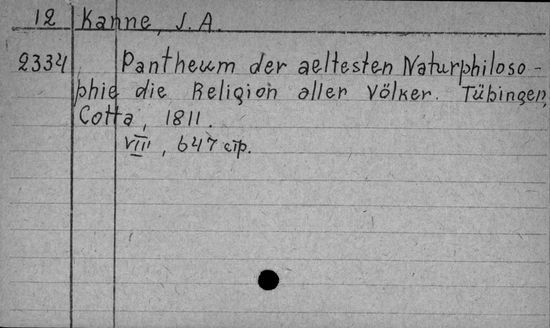 12 Kanne, J. A.
2334 Pantheum der aeltesten Naturphiloso-
phie die Religion aller Völker. Tübingen,
Cotta, 1811.
VIII, 647 стр.